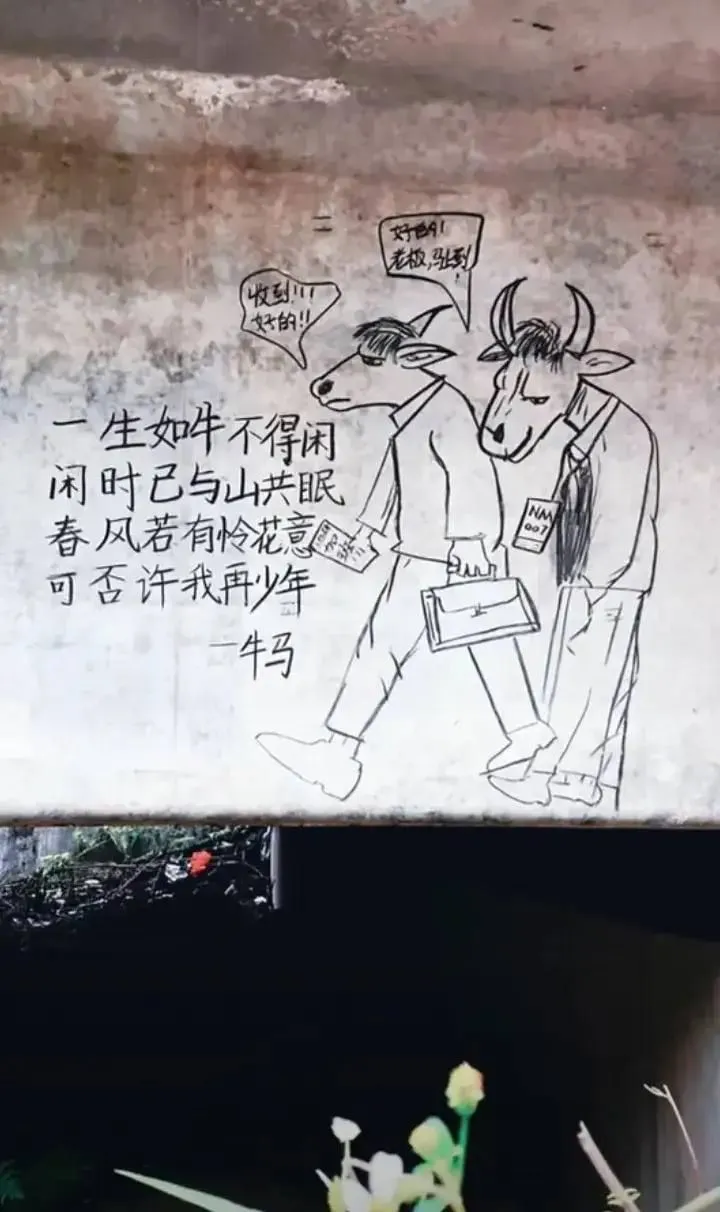 收到!!!
好的!!
好的!
老板,马上到
!
一生如牛不得闲
闲时已与山共眠
春风若有怜花意
可否许我再少年
一牛马
NM
007
加班!!!